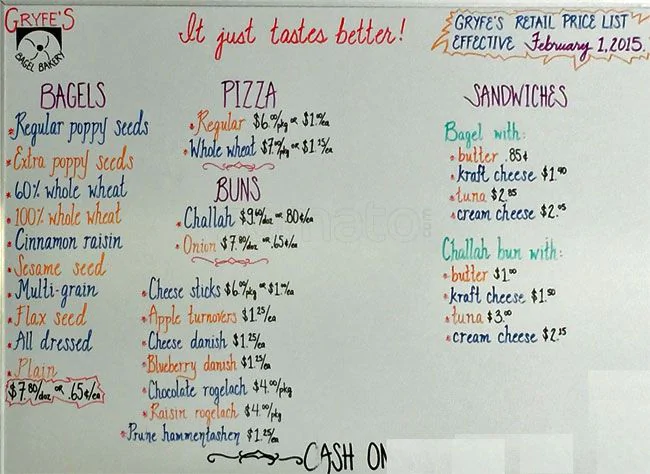 GRYFE'S
BAGEL BAKERY
It just tastes better!
GRYFE'S RETAIL PRICE LIST
EFFECTIVE February 1, 2015.
BAGELS
Regular poppy seeds
Extra poppy seeds
60% whole wheat
100% whole wheat
Cinnamon raisin
Sesame seed
Multi-grain
Flax seed
All dressed
Plain
$7.80/doz OR .65¢/ea
PIZZA
Regular $6.00/pkg OR $1.00/ea
Whole wheat $7.50/pkg OR $1.25/ea
BUNS
Challah $9.60/doz OR .80¢/ea
Onion $7.80/doz OR .65¢/ea
Cheese sticks $6.00/pkg OR $1.00/ea
Apple turnovers $1.25/ea
Cheese danish $1.25/ea
Blueberry danish $1.25/ea
Chocolate rogelach $4.00/pkg
Raisin rogelach $4.00/pkg
Prune hammentashen $1.25/ea
SANDWICHES
Bagel with:
butter .85¢
kraft cheese $1.90
tuna $2.85
cream cheese $2.05
Challah bun with:
butter $1.00
kraft cheese $1.50
tuna $3.00
cream cheese $2.15
CASH